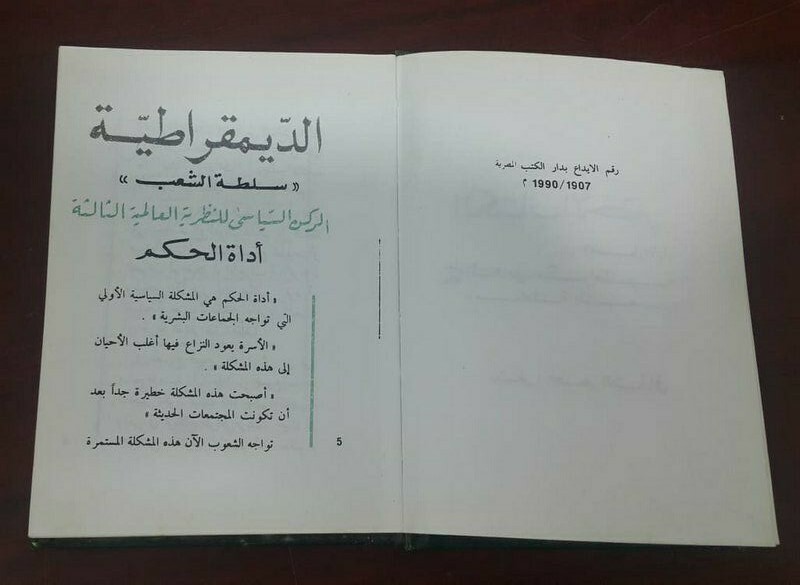 رقم الايداع بدار الكتب المصرية
1990/1907 م
الدّيمقراطيّة
« سلطة الشعب »
الركن السّياسىّ للنظرية العالمية الثالثة
أداة الحكم
« أداة الحكم هي المشكلة السياسية الأولي
التي تواجه الجماعات البشرية » .
« الأسرة يعود النزاع فيها أغلب الأحيان
إلى هذه المشكلة » .
« أصبحت هذه المشكلة خطيرة جداً بعد
أن تكونت المجتمعات الحديثة »
تواجه الشعوب الآن هذه المشكلة المستمرة
5